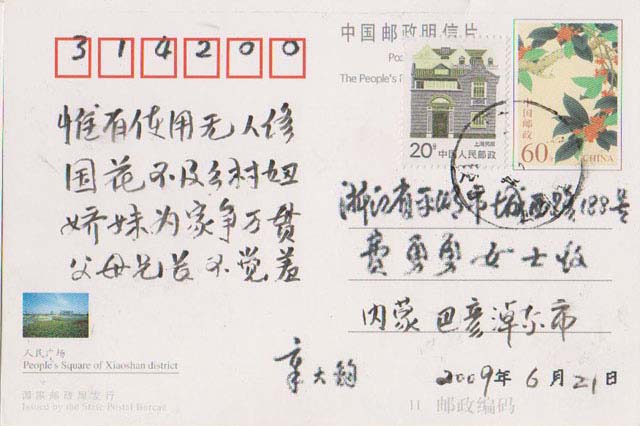 314200
惟有使用无人修
国花不及乡村妞
娇妹为家争万贯
父母兄长不觉羞
人民广场
People's Square of Xiaoshan district
国家邮政局发行
Issued by the State Postal Bureau
章大钧
中国邮政明信片
Pos
The People's R
上海民居
20分 中国人民邮政
中国邮政
60分
CHINA
浙江省平湖市城西路188号
费勇勇女士收
内蒙 巴彦淖尔市
2009年6月21日
邮政编码